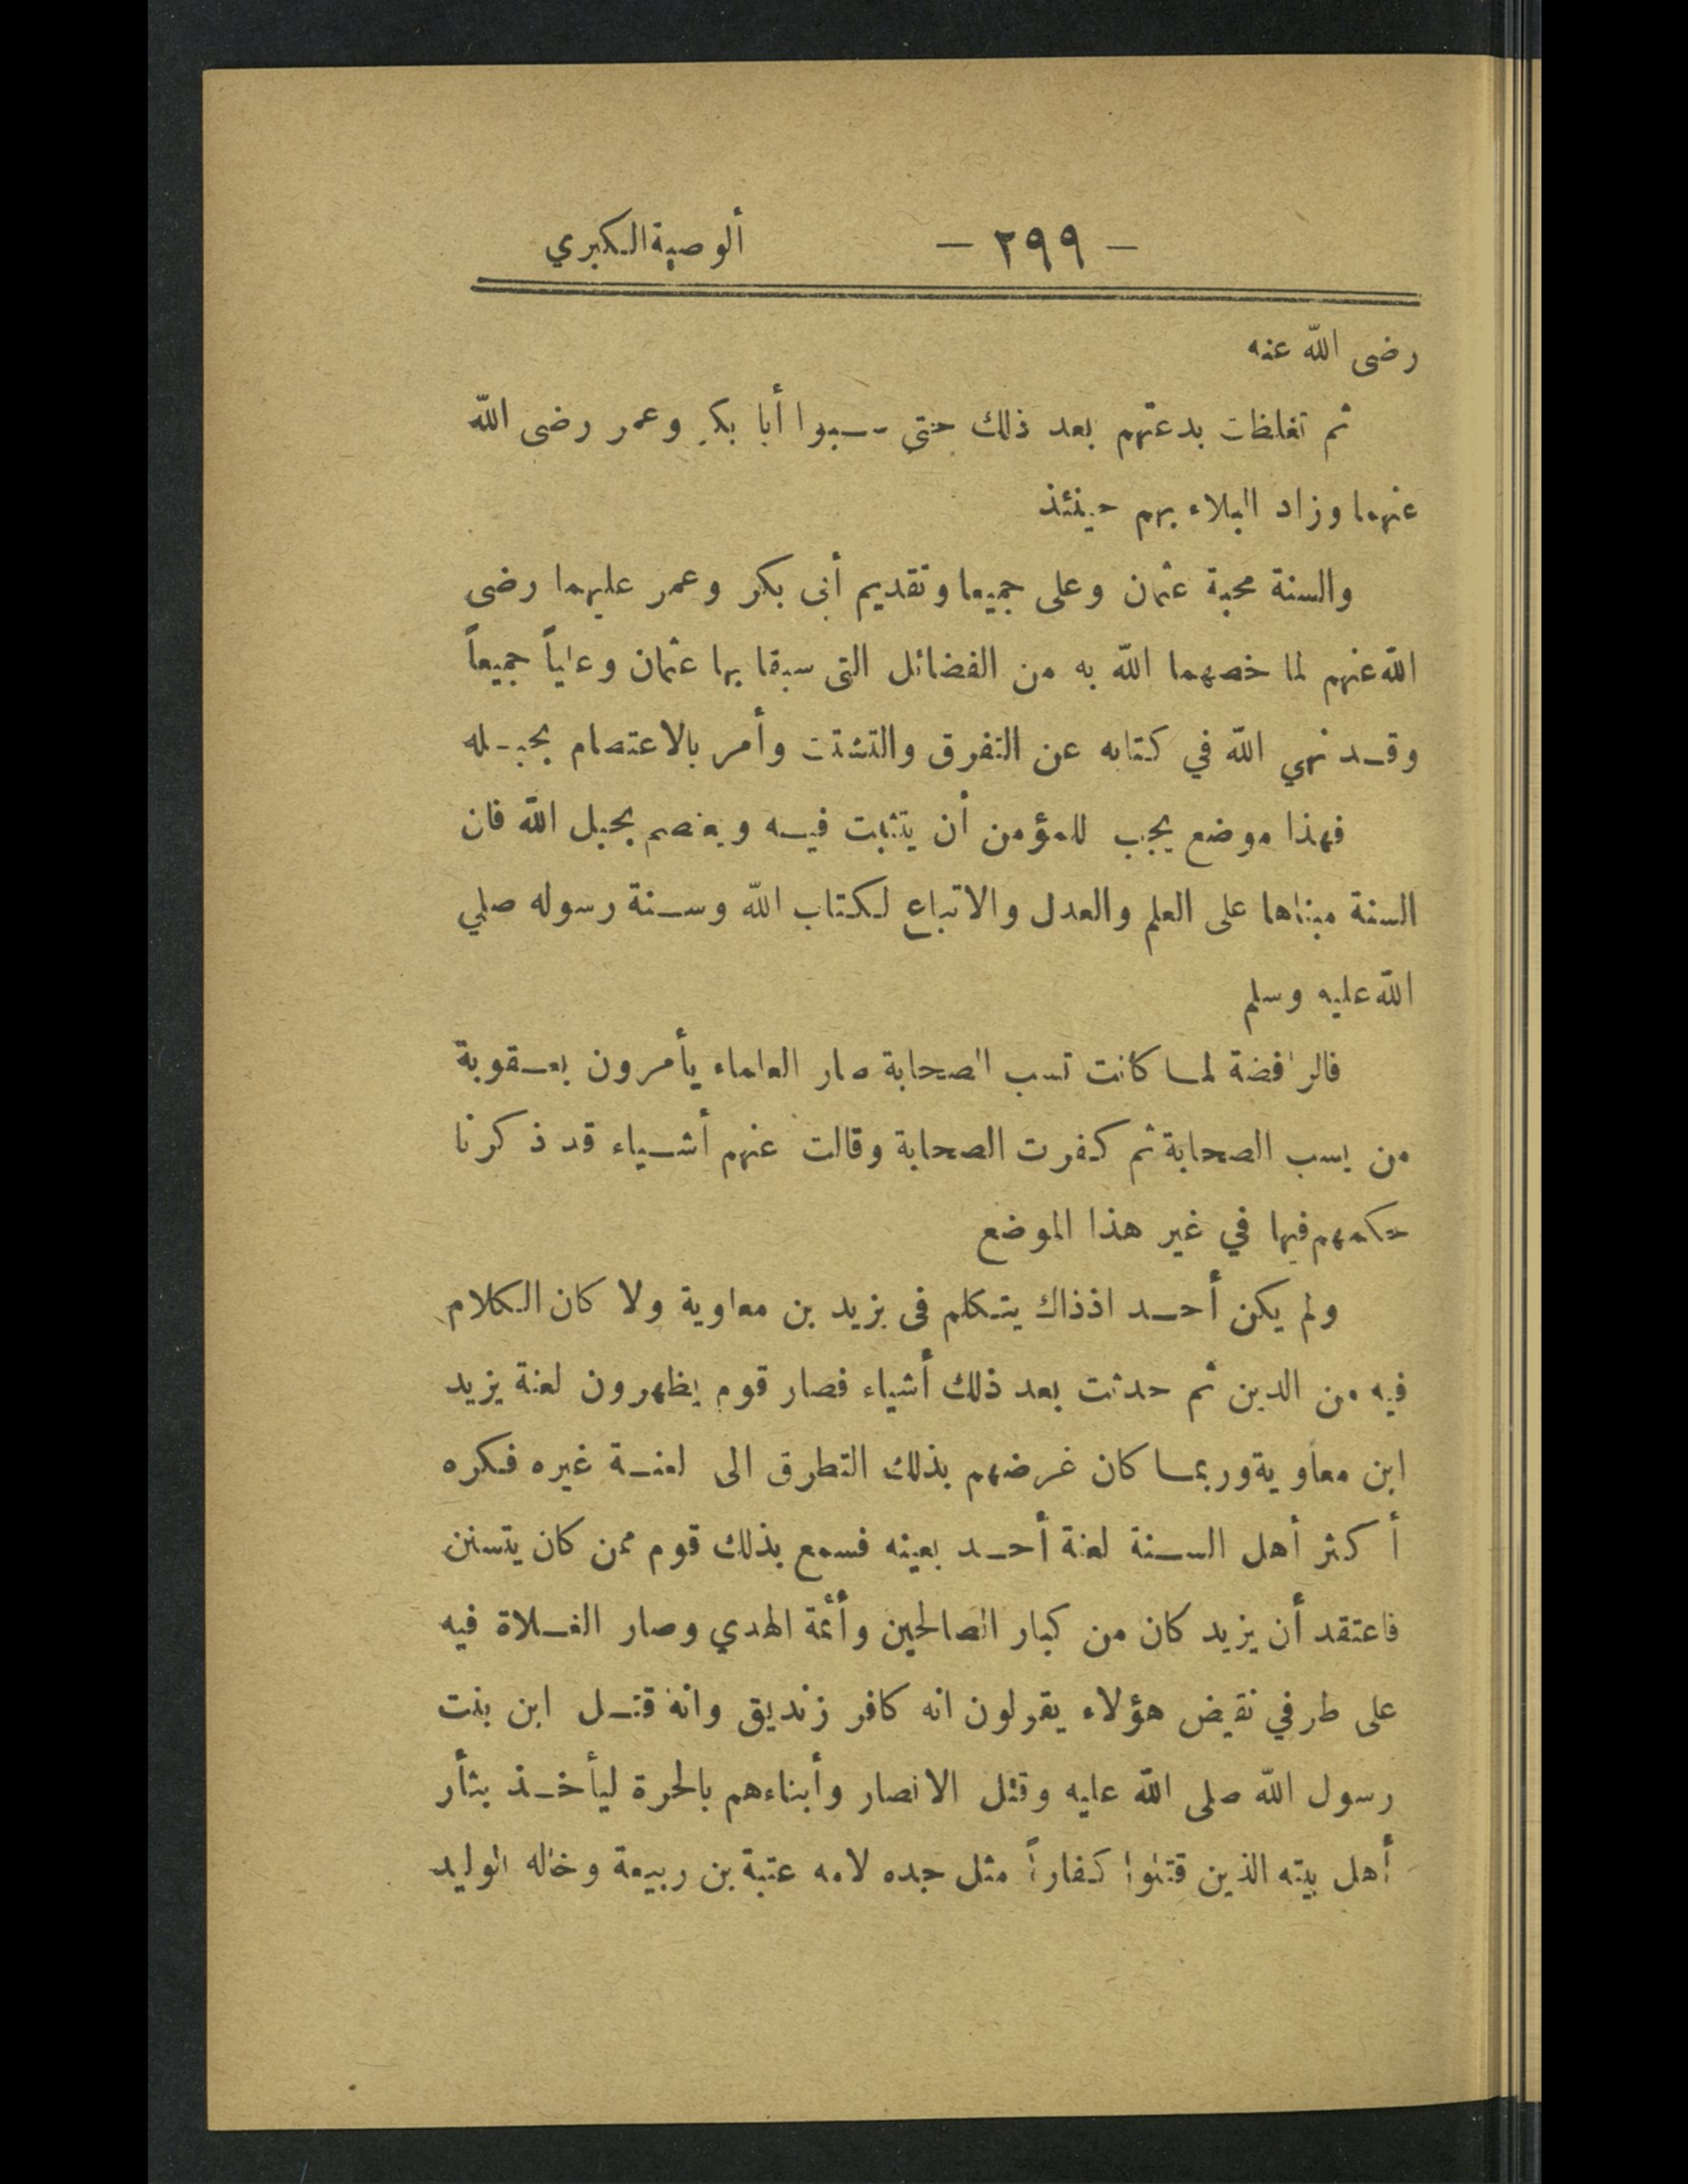 — ٢٩٩ — ألوصية الكبري
رضى الله عنه
ثم تغلظات بدعتهم بعد ذلك حتى سبوا أبا بكر وعمر رضى الله
عنهما وزاد البلاء بهم حينئذ
والسنة محبة عثمان وعلى جميعا وتقديم أبى بكر وعمر عليهما رضى
الله عنهم لما خصهما الله به من الفضائل التى سبقا بها عثمان وعلياً جميعاً
وقد نهي الله في كتابه عن التفرق والتشتت وأمر بالاعتصام بحبله
فهذا موضع يجب للمؤمن أن يتثبت فيه ويعتصم بحبل الله فان
السنة مبناها على العلم والعدل والاتباع لكتاب الله وسنة رسوله صلي
الله عليه وسلم
فالرافضة لما كانت تسب الصحابة صار العلماء يأمرون بعقوبة
من يسب الصحابة ثم كفرت الصحابة وقالت عنهم أشياء قد ذكرنا
حكمهم فيها في غير هذا الموضع
ولم يكن أحد اذذاك يتكلم فى يزيد بن معاوية ولا كان الكلام
فيه من الدين ثم حدثت بعد ذلك أشياء فصار قوم يظهرون لعنة يزيد
ابن معاوية وربما كان غرضهم بذلك التطرق الى لعنة غيره فكره
أكثر أهل السنة لعنة أحد بعينه فسمع بذلك قوم ممن كان يتسنن
فاعتقد أن يزيد كان من كبار الصالحين وأئمة الهدي وصار الغلاة فيه
على طرفي نقيض هؤلاء يقولون انه كافر زنديق وانه قتل ابن بنت
رسول الله صلى الله عليه وقتل الانصار وأبناءهم بالحرة ليأخذ بثأر
أهل بيته الذين قتلوا كفاراً مثل جده لامه عتبة بن ربيعة وخاله الوليد